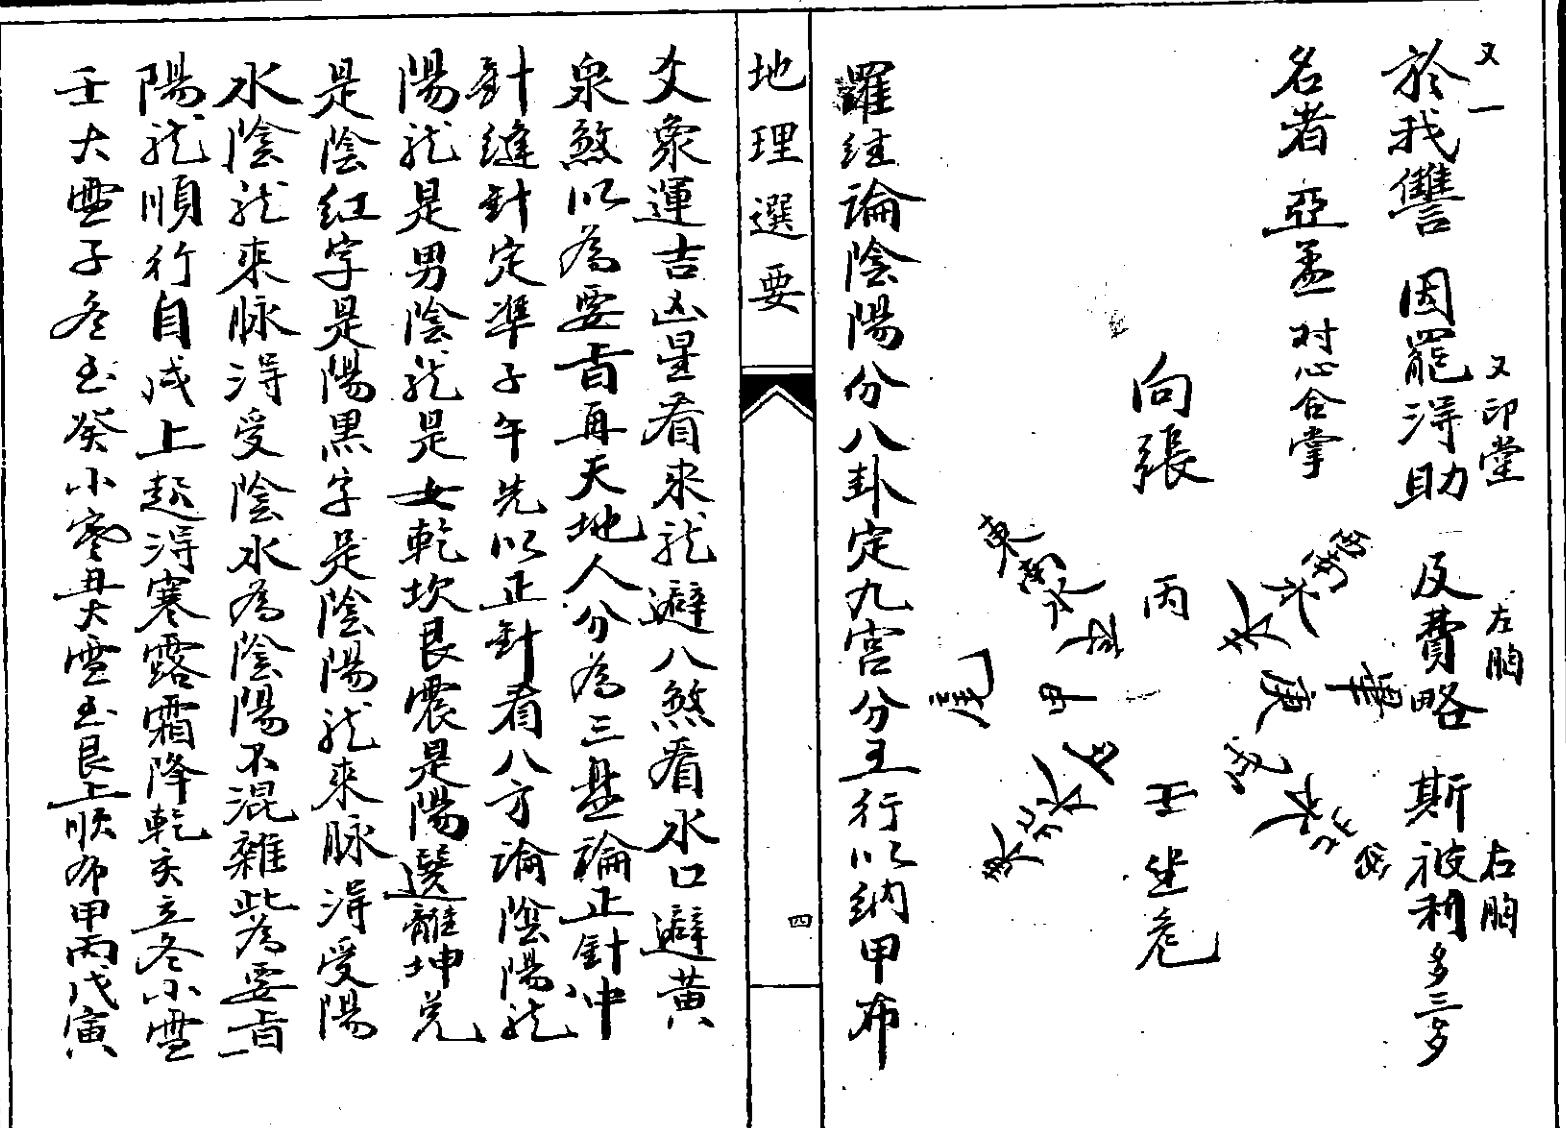 又一
於我讐 因罷淂助 反費略 斯彼利多三多
又印堂
左胸
右胸
名者 亞孟 对心合掌
向張
丙
壬
坐危
東南
甲
庚
尾
畢
羅経論陰陽分八卦定九宮分五行以納甲布
地理選要
四
爻象運吉凶星看來龍避八煞看水口避黃
泉煞以為要旨再天地人分為三盤論正針中
針縫針定準子午先以正針看八方論陰陽龍
陽龍是男陰龍是女乾坎艮震是陽巽離坤兑
是陰紅字是陽黒字是陰陽龍來脉淂受陽
水陰龍來脉淂受陰水為陰陽不混雜此為要旨
陽龍順行自戌上起淂寒露霜降乾亥立冬小雪
壬大雪子冬玉癸小寒丑大雪玉艮上順布甲丙戊寅